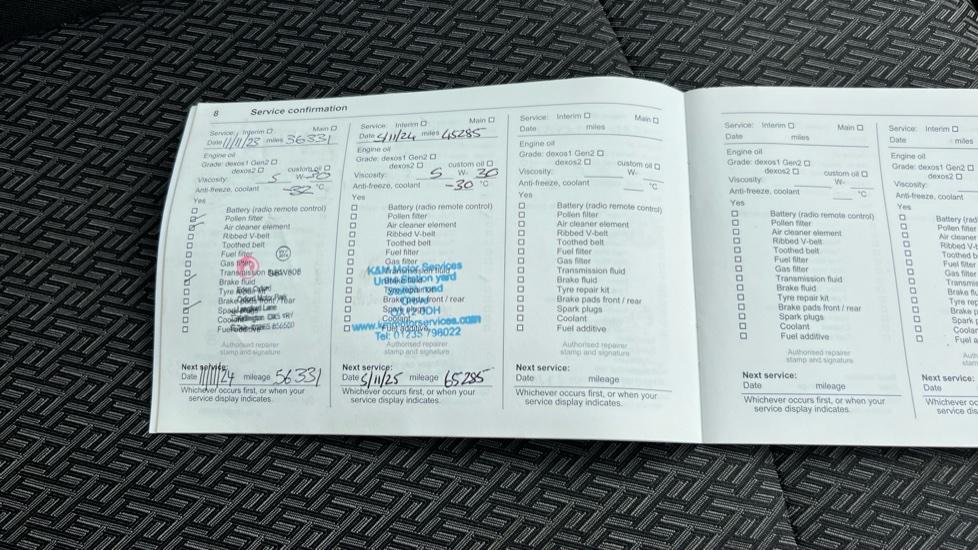 8 Service confirmation
Service: Interim Main
Date 11/11/23 miles 36331
Engine oil
Grade: dexos1 Gen2
dexos2 custom oil
Viscosity: 5 W-
Anti-freeze, coolant °C
Yes
Battery (radio remote control)
Pollen filter
Air cleaner element
Ribbed V-belt
Toothed belt
Fuel filter
Gas filter
Transmission
Brake fluid
Tyre
Brake pads front / rear
Spark
Coolant
Fuel
Authorised repairer
stamp and signature
Next service:
Date 11/11/24 mileage 56331
Whichever occurs first, or when your
service display indicates.
Service: Interim Main
Date 5/11/24 miles 45285
Engine oil
Grade: dexos1 Gen2
dexos2 custom oil
Viscosity: 5 W- 30
Anti-freeze, coolant -30 °C
Yes
Battery (radio remote control)
Pollen filter
Air cleaner element
Ribbed V-belt
Toothed belt
Fuel filter
Gas filter
Transmission fluid
Brake fluid
Tyre repair kit
Brake pads front / rear
Spark plugs
Coolant
Fuel additive
K&M Motor Services
Station yard
www.kmmotorservices.com
Tel: 01235 798022
Authorised repairer
stamp and signature
Next service:
Date 5/11/25 mileage 65285
Whichever occurs first, or when your
service display indicates.
Service: Interim Main
Date miles
Engine oil
Grade: dexos1 Gen2
dexos2 custom oil
Viscosity: W-
Anti-freeze, coolant °C
Yes
Battery (radio remote control)
Pollen filter
Air cleaner element
Ribbed V-belt
Toothed belt
Fuel filter
Gas filter
Transmission fluid
Brake fluid
Tyre repair kit
Brake pads front / rear
Spark plugs
Coolant
Fuel additive
Authorised repairer
stamp and signature
Next service:
Date mileage
Whichever occurs first, or when your
service display indicates.
Service: Interim Main
Date miles
Engine oil
Grade: dexos1 Gen2
dexos2 custom oil
Viscosity: W-
Anti-freeze, coolant °C
Yes
Battery (radio remote control)
Pollen filter
Air cleaner element
Ribbed V-belt
Toothed belt
Fuel filter
Gas filter
Transmission fluid
Brake fluid
Tyre repair kit
Brake pads front / rear
Spark plugs
Coolant
Fuel additive
Authorised repairer
stamp and signature
Next service:
Date mileage
Whichever occurs first, or when your
service display indicates.
Service: Interim
Date miles
Engine oil
Grade: dexos1 Gen2
dexos2
Viscosity:
Anti-freeze, coolant
Yes
Battery (rad
Pollen filter
Air cleaner
Ribbed V-b
Toothed b
Fuel filter
Gas filter
Transmis
Brake flu
Tyre rep
Brake p
Spark p
Coolan
Fuel a
Auth
stam
Next service:
Date
Whichever oc
service dis